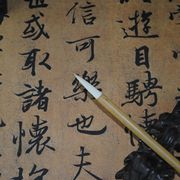 遊目騁懷
信可樂也夫
或取諸懷